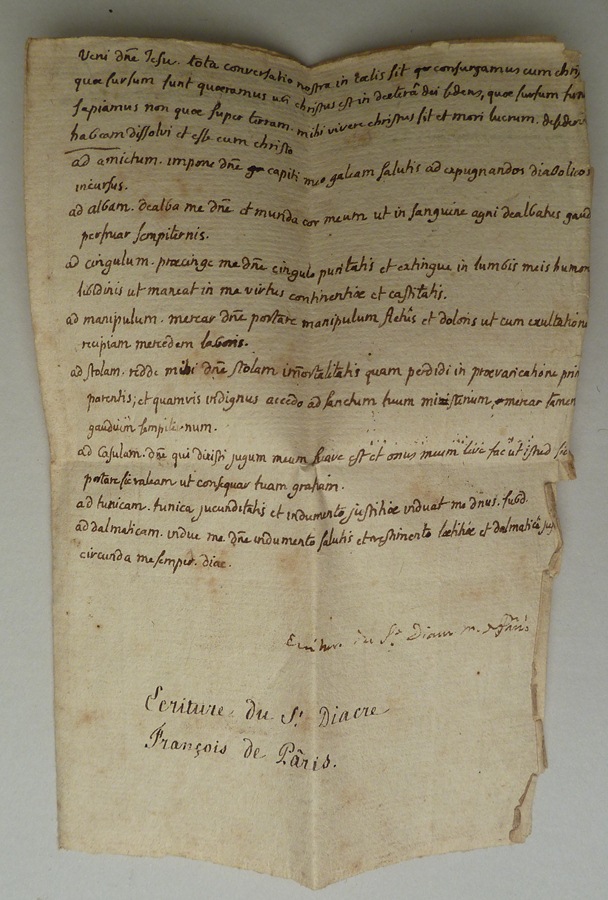 Veni dñe Jesu. tota conversatio nostra in cœlis sit consurgamus cum chris
quæ sursum sunt quæramus ubi christus est in dexterâ dei sedens, quæ sursum sun
sapiamus non quæ super terram. mihi vivere christus sit et mori lucrum. desider
habeam dissolvi et esse cum christo
ad amictum. impone dñe capiti meo galeam salutis ad expugnandos diabolicos
incursus.
ad albam. dealba me dñe et munda cor meum ut in sanguine agni dealbatus gaud
perfruar sempiternis.
ad cingulum. præcinge me dñe cingulo puritatis et extingue in lumbis meis humor
libidinis ut maneat in me virtus continentiæ et castitatis.
ad manipulum. merear dñe portare manipulum fletûs et doloris ut cum exultatione
recipiam mercedem laboris.
ad stolam. redde mihi dñe stolam immortalitatis quam perdidi in prævaricatione prim
parentis; et quamvis indignus accedo ad sanctum tuum misterium, merear tamen
gaudium sempiternum.
ad Casulam. dñe qui dixisti jugum meum suave est et onus meum leve fac ut istud sic
portare sic valeam ut consequar tuam gratiam.
ad tunicam. tunica jucunditatis et indumento justitiæ induat me dnus. subd.
ad dalmaticam. indue me dñe indumento salutis et vestimento lætitiæ et dalmaticâ jus
circunda me semper. diac.
Ecriture du St Diacre m. de Pâris
Ecriture du St Diacre
François de Pâris.